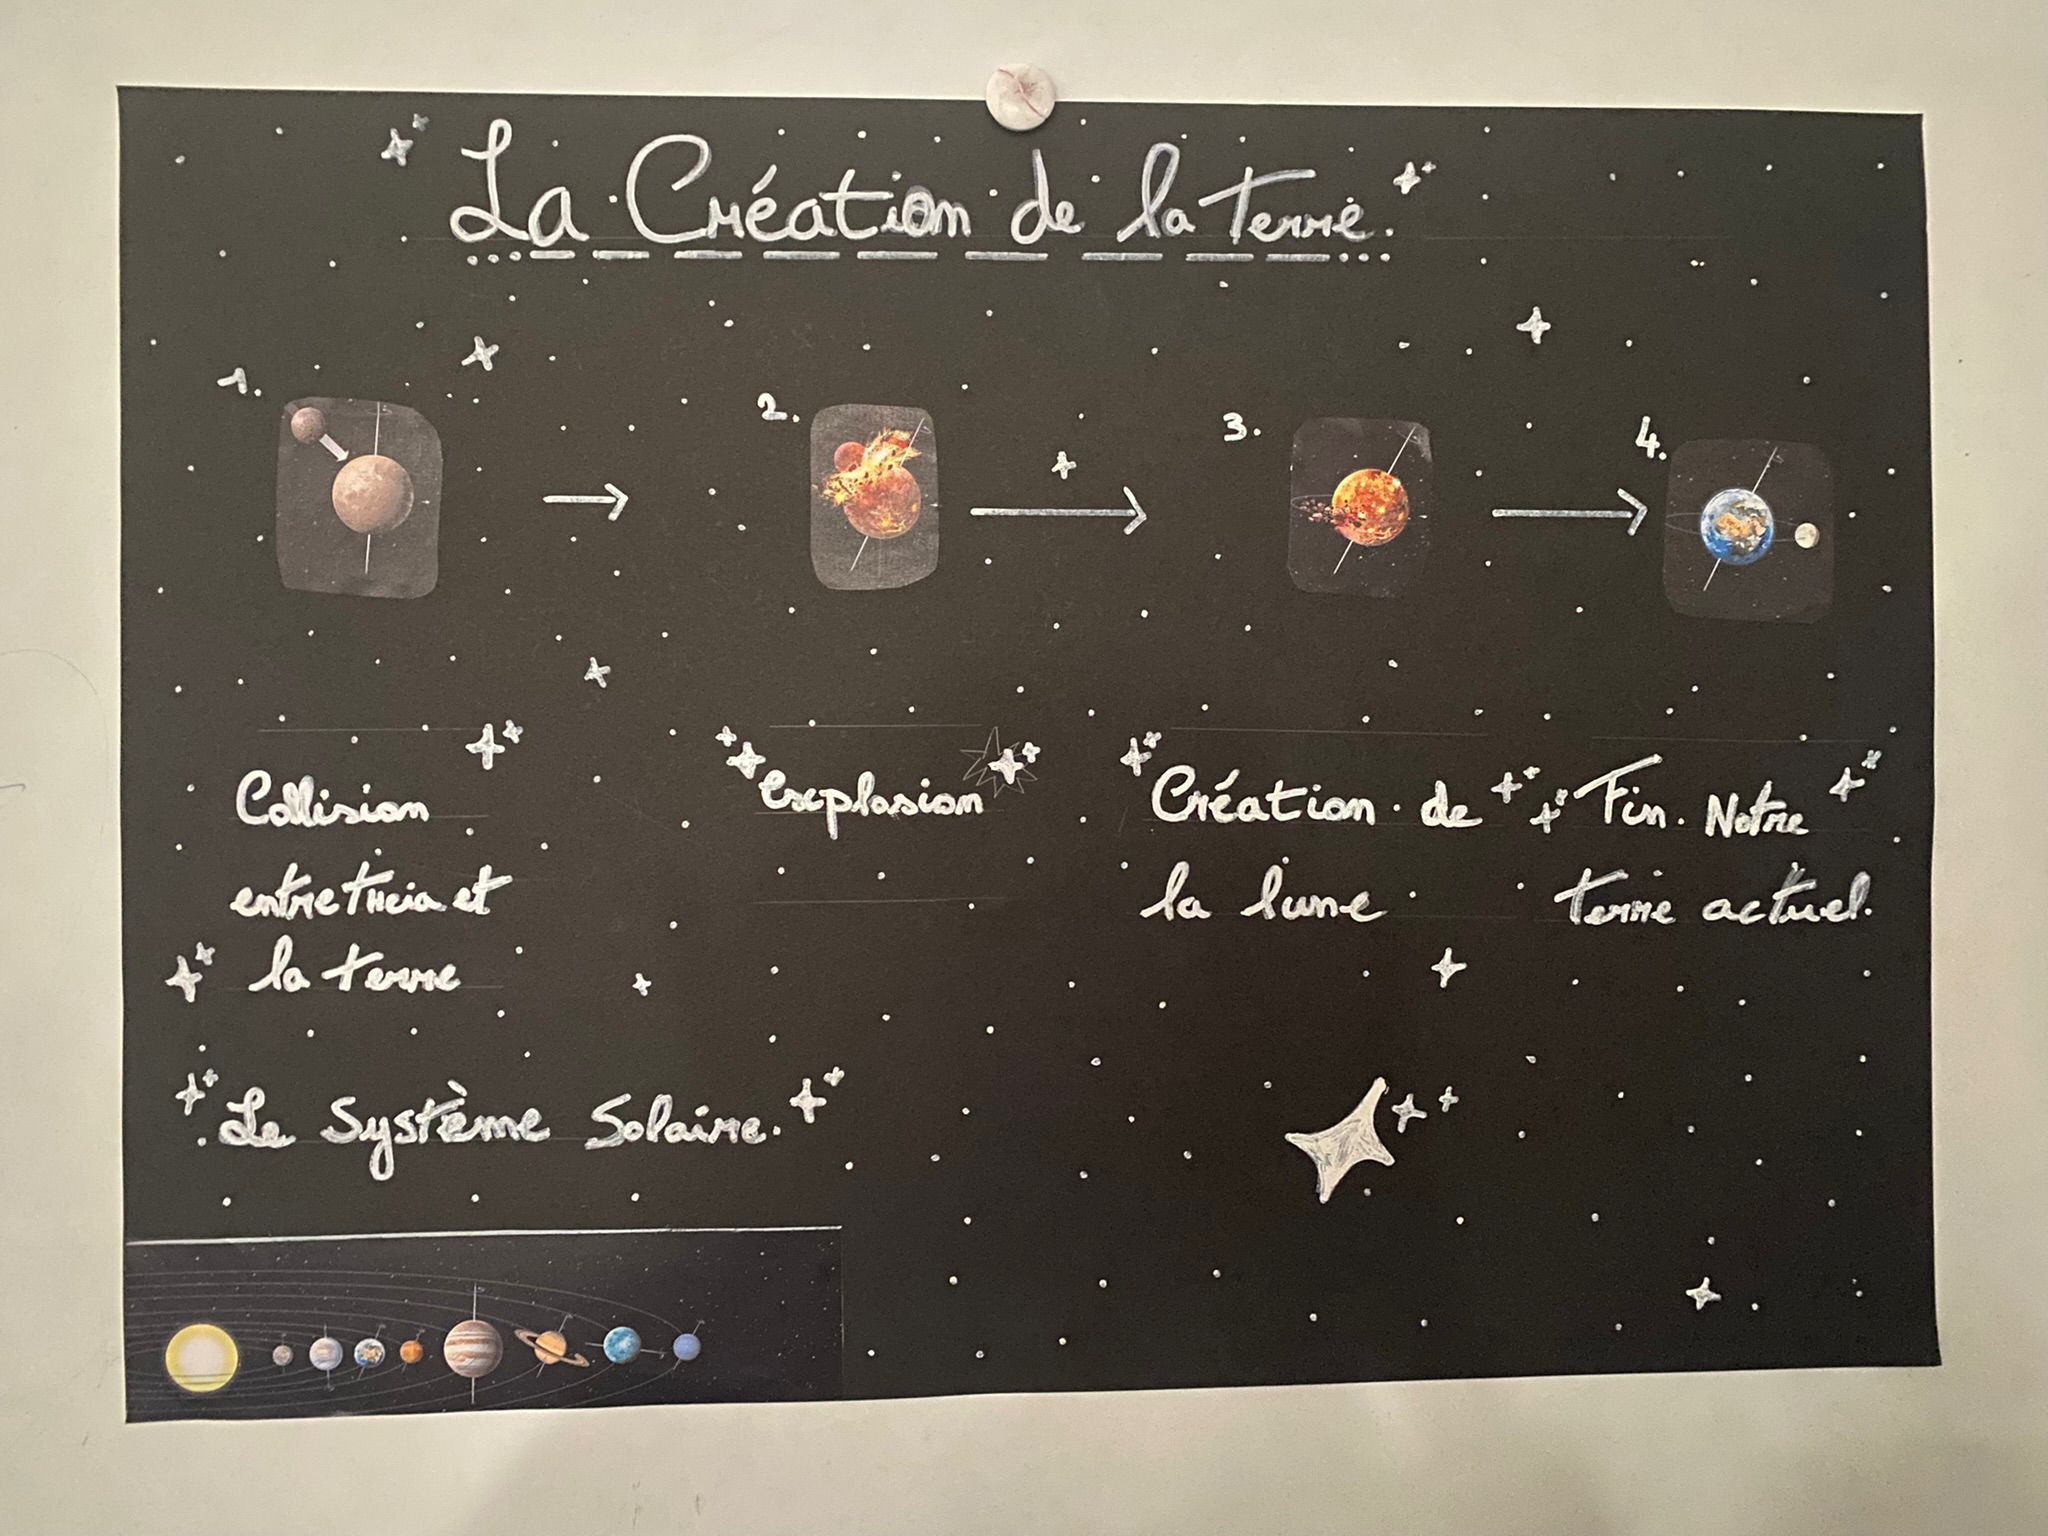 La Création de la Terre.
1.
2.
3.
4.
Collision
entre theia et
la terre
Explosion
Création de
la lune
Fin. Notre
terre actuel.
Le Système Solaire.